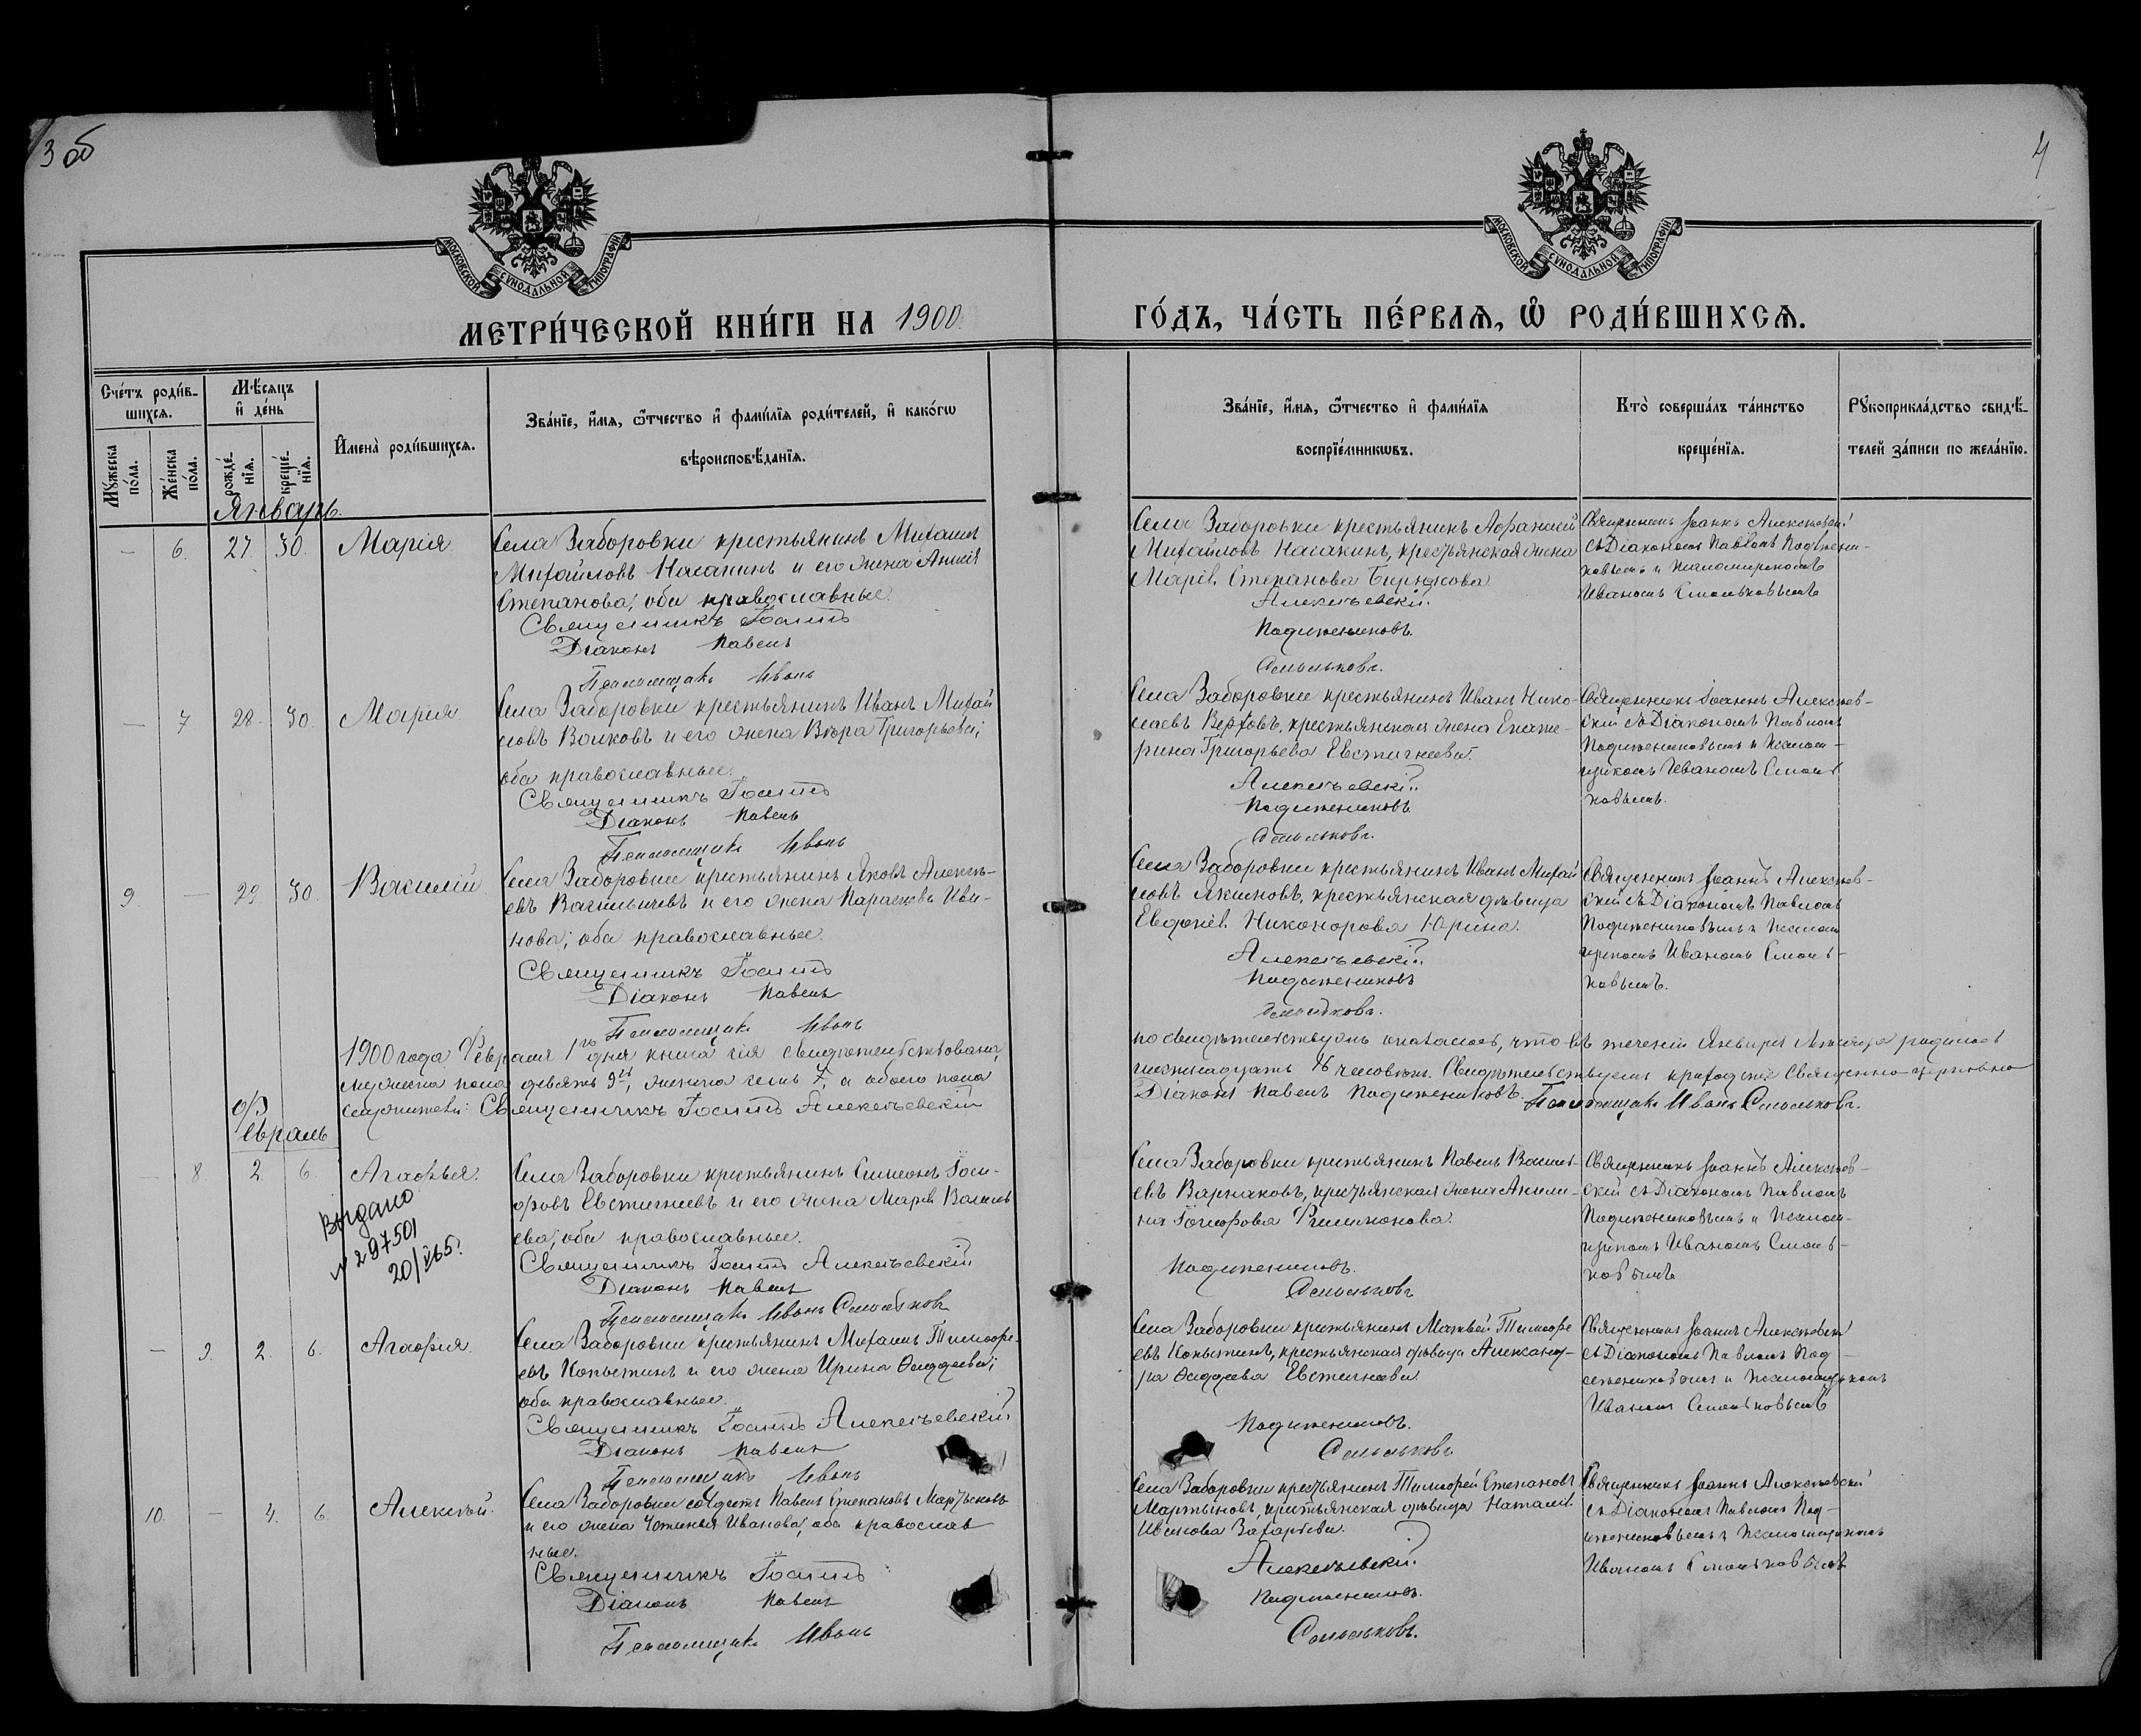 3 об
4
МОСКОВСКОЙ СУНОДАЛЬНОЙ ТИПОГРАФІИ
МОСКОВСКОЙ СУНОДАЛЬНОЙ ТИПОГРАФІИ
МЕТРИ́ЧЕСКОЙ КНИ́ГИ НА 1900.
ГО́ДЪ, ЧА́СТЬ ПЕ́РВАѦ, Ѡ РОДИ́ВШИХСѦ.
Сче́тъ роди́в-
шихсѧ.
Мꙋ́жеска
по́ла.
Же́нска
по́ла.
Мѣ́сѧцъ
и҆ де́нь
рожде́-
нїѧ.
креще́-
нїѧ.
И҆мена̀ роди́вшихсѧ.
Зва́нїе, и҆́мѧ, ѻ҆́тчество и҆ фами́лїѧ роди́телей, и҆ како́гѡ
вѣроисповѣ́данїѧ.
Зва́нїе, и҆́мѧ, ѻ҆́тчество и҆ фами́лїѧ
воспрїе́мникѡвъ.
Кто̀ соверша́лъ та́инство
креще́нїѧ.
Рꙋкоприкла́дство свидѣ́-
телей за́писи по жела́нїю.
Январь.
— 6. 27. 30. Марія.
Села Заборовки крестьянинъ Михаилъ
Михайловъ Насакинъ и его жена
Степанова; оба православные.
Священникъ Іоаннъ
Діаконъ Павелъ
Псаломщикъ Иванъ
Села Заборовки крестьянинъ Афанасій
Михайловъ Насакинъ, крестьянская жена
Марія Степанова Бирюкова
Алексѣевскій.
Подтженниковъ
Смольковъ.
Священникъ Іоаннъ Алексѣевскій
съ Діакономъ Павломъ
и Псаломщикомъ
Иваномъ Смольковымъ
— 7 28. 30. Марія.
Села Заборовки крестьянинъ Иванъ Михай
ловъ Волковъ и его жена Вѣра Григорьева;
оба православные.
Священникъ Іоаннъ
Діаконъ Павелъ
Псаломщикъ Иванъ
Села Заборовки крестьянинъ Иванъ Нико-
лаевъ крестьянская жена Екате-
рина Григорьева Евстигнеева.
Алексѣевскій.
Смольковъ.
Священникъ Іоаннъ Алексѣев-
скій съ Діакономъ Павломъ
и Псалом-
щикомъ Иваномъ Смоль
ковымъ.
9. — 29. 30. Василій.
Села Заборовки крестьянинъ Яковъ Алексѣ-
евъ Васильичевъ и его жена Параскева Ива-
нова; оба православные.
Священникъ Іоаннъ
Діаконъ Павелъ
Псаломщикъ Иванъ
Села Заборовки крестьянинъ Иванъ Михай
ловъ Якимовъ, крестьянская дѣвица
Евфимія Никонорова Юрина.
Алексѣевскій.
Смольковъ.
Священникъ Іоаннъ Алексѣев-
скій съ Діакономъ Павломъ
и Псалом
щикомъ Иваномъ Смоль-
ковымъ.
1900 года Февраля 1го дня книга сія свидѣтельствована,
мужеска пола девять 9ть, женска семь 7, а обоего пола
по свидѣтельству оказалось, что въ теченіи Января мѣсяца родилось
шестнадцать 16 человѣкъ. Свидѣтельствуемъ приходскіе Священно-церковно
служители: Священникъ Іоаннъ Алексѣевскій
Діаконъ Павелъ Псаломщикъ Иванъ Смольковъ.
Февраль
— 8. 2. 6. Агафья.
Выдано
№ 297501
Села Заборовки крестьянинъ Симеонъ Іоси-
фовъ Евстигнеевъ и его жена Марія Василь
ева; оба православные.
Священникъ Іоаннъ Алексѣевскій
Діаконъ Павелъ
Псаломщикъ Иванъ Смольковъ
Села Заборовки крестьянинъ Павелъ Василь-
евъ Варнаковъ, крестьянская жена Акили-
на Іосифова Филимонова.
Смольковъ
Священникъ Іоаннъ Алексѣев-
скій съ Діакономъ Павломъ
и Псалом-
щикомъ Иваномъ Смоль-
ковымъ
— 9. 2. 6. Агафія.
Села Заборовки крестьянинъ Михаилъ Тимофе-
евъ Копытинъ и его жена Ирина Фаддеева;
оба православные.
Священникъ Іоаннъ Алексѣевскій
Діаконъ Павелъ
Псаломщикъ Иванъ
Села Заборовки крестьянинъ Матвей Тимофе
евъ Копытинъ, крестьянская дѣвица Александ-
ра Фаддеева Евстигнеева.
Смольковъ
Священникъ Іоаннъ Алексѣевскій
съ Діакономъ Павломъ
и Псаломщикомъ
Иваномъ Смольковымъ
10. — 4. 6. Алексѣй.
Села Заборовки солдатъ Павелъ Степановъ
и его жена Устинья Иванова; оба православ
ные.
Священникъ Іоаннъ
Діаконъ Павелъ
Псаломщикъ Иванъ
Села Заборовки крестьянинъ Тимофей Степановъ
Мартыновъ, крестьянская дѣвица Наталія
Алексѣевскій.
Смольковъ.
Священникъ Іоаннъ Алексѣевскій
съ Діакономъ Павломъ
и Псаломщикомъ
Иваномъ Смольковымъ